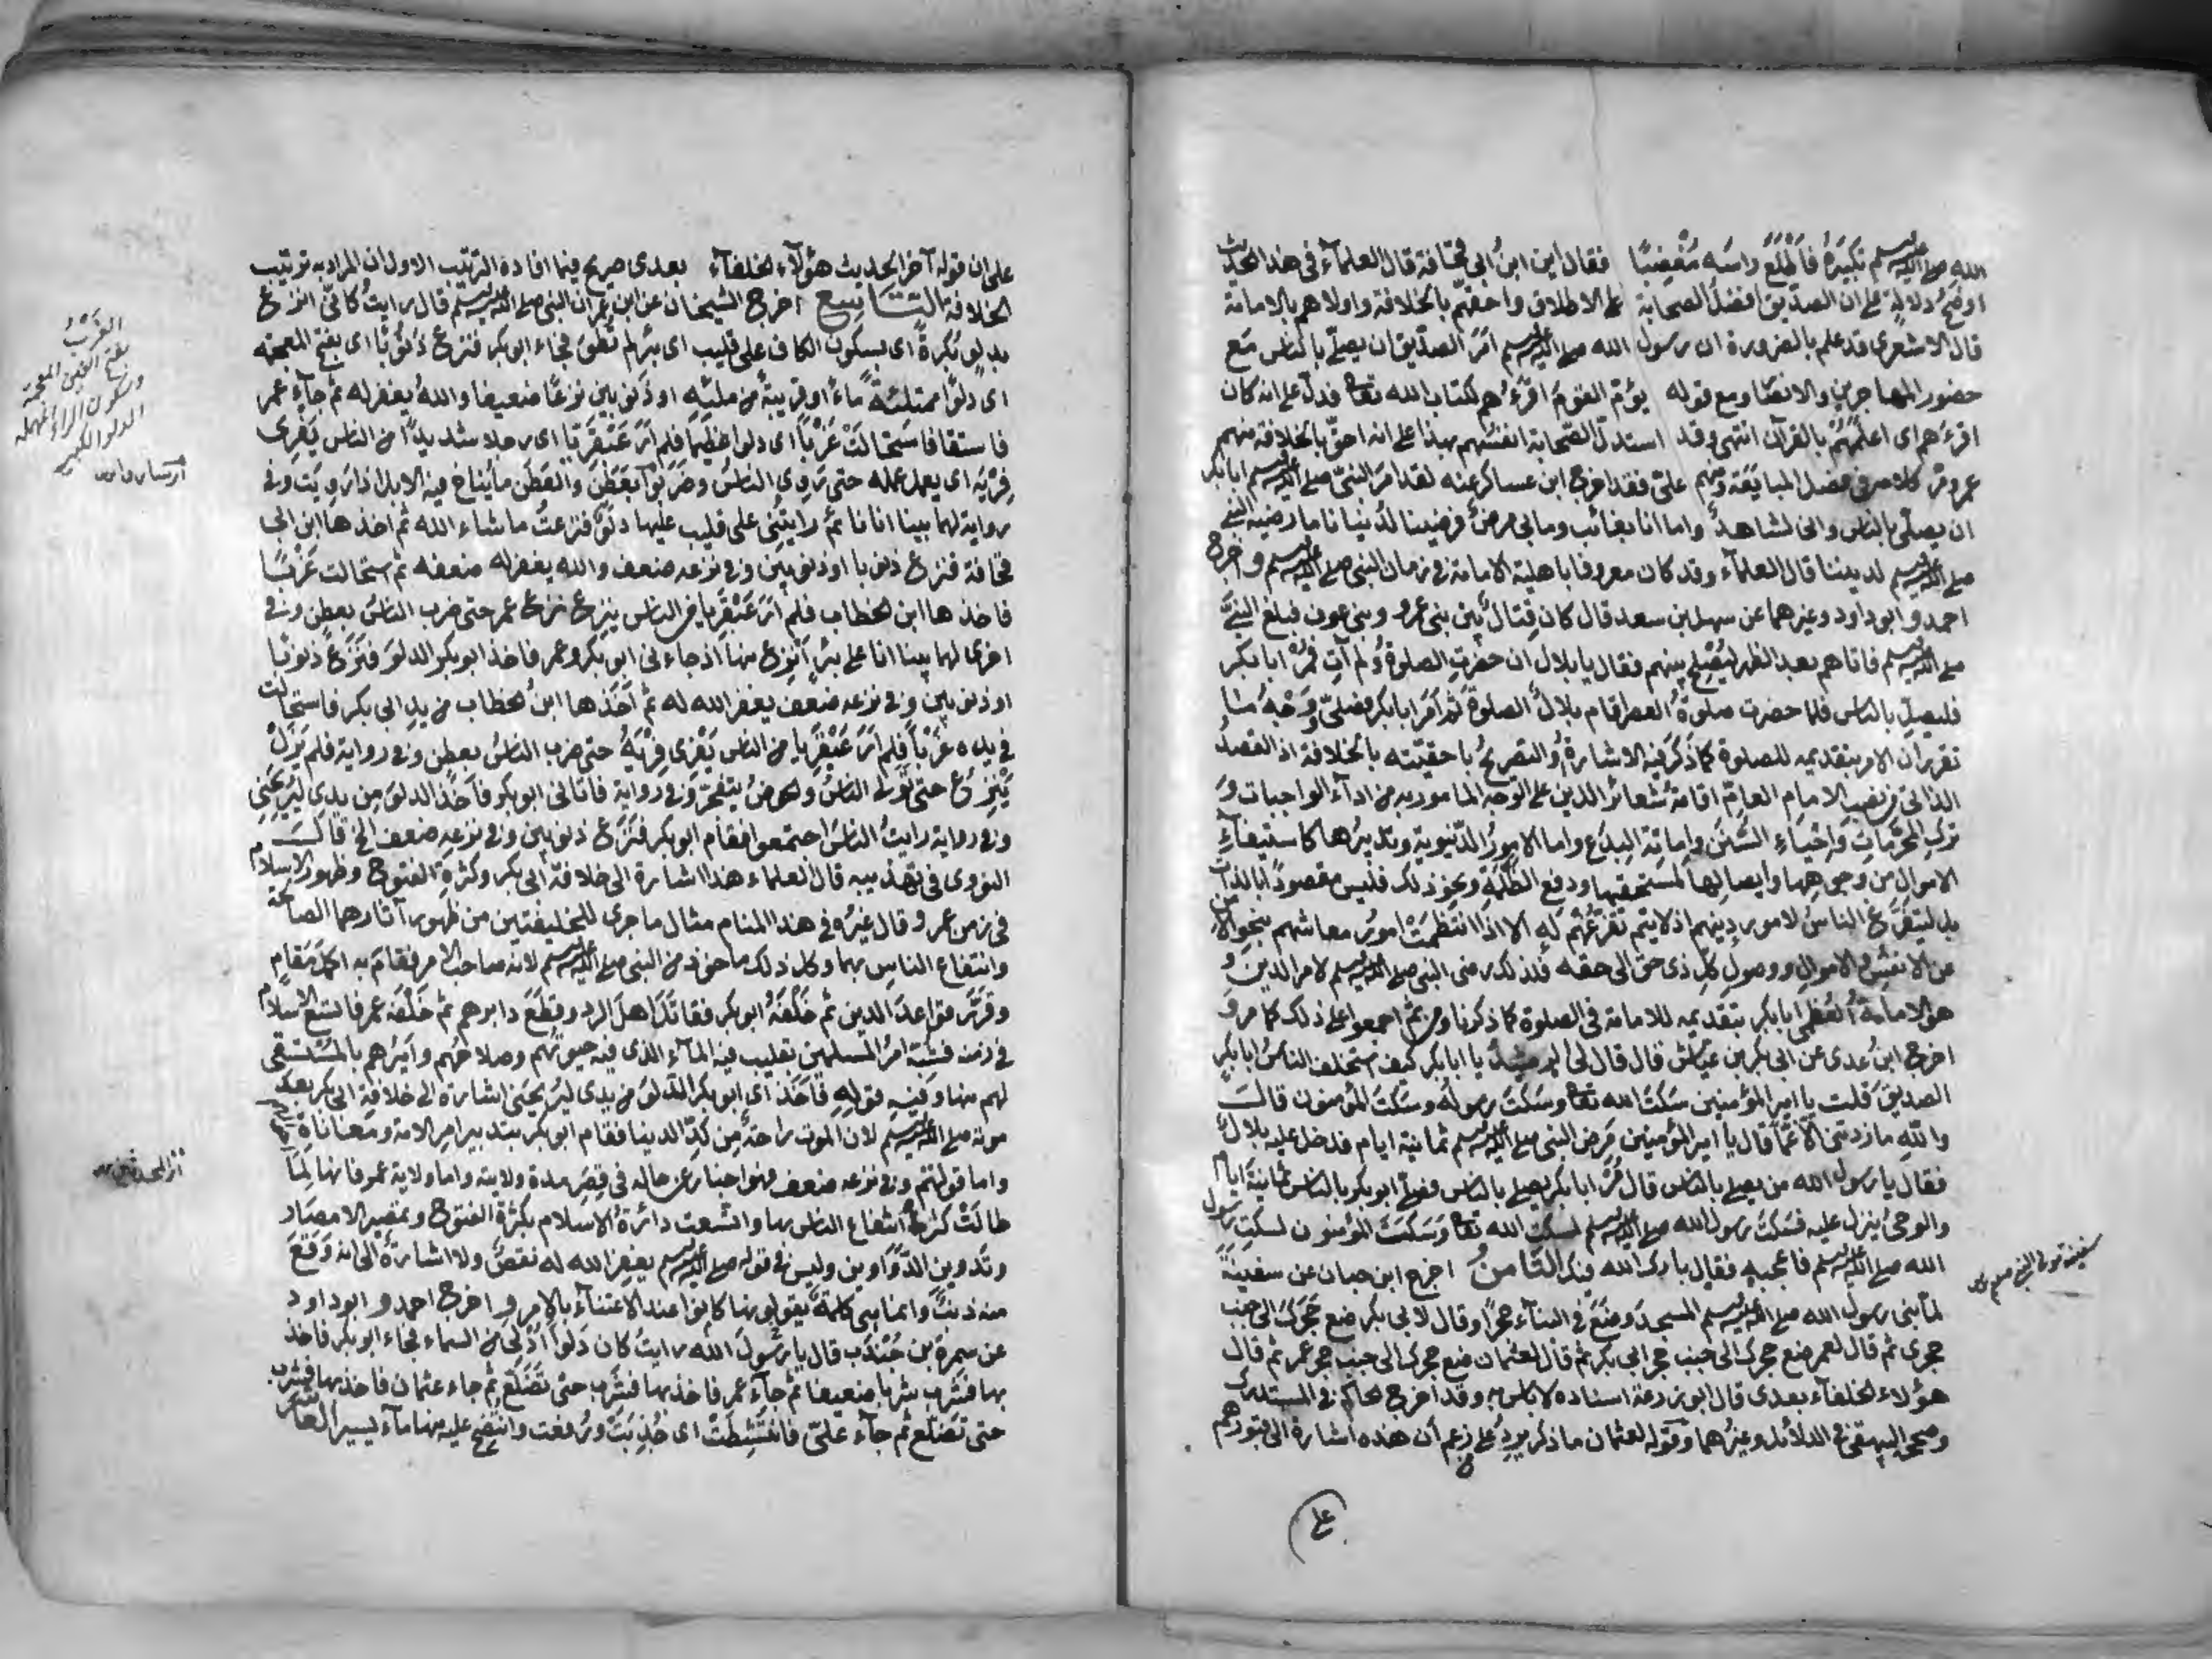 الله صلى الله عليه وسلم تكبيره فأطلع راسه مغضبا فقال اين ابن ابي قحافة قال العلماء في هذا الحديث
اوضح دلالة على ان الصديق افضل الصحابة على الاطلاق واحقهم بالخلافة واولاهم بالامامة
قال الاشعرى قد علم بالضرورة ان رسول الله صلى الله عليه وسلم امر الصديق ان يصلى بالناس مع
حضور المهاجرين والانصار مع قوله يؤم القوم اقرءهم لكتاب الله تعالى فدل على انه كان
اقرءهم اى اعلمهم بالقرآن انتهى وقد استدل الصحابة انفسهم بهذا على انه احق بالخلافة منهم
عمر ومر كلامه فى فضل المبايعة ومنهم على فقد اخرج ابن عساكر عنه لقد امر النبى صلى الله عليه وسلم ابا بكر
ان يصلى بالناس وانى لشاهد وما انا بغائب وما بى مرض فرضينا لدنيانا ما رضيه النبى
صلى الله عليه وسلم لديننا قال العلماء وقد كان معروفا باهلية الامامة فى زمان النبى صلى الله عليه وسلم واخرج
احمد وابو داود وغيرهما عن سهل بن سعد قال كان قتال بين بنى عمرو وبنى عوف فبلغ النبى
صلى الله عليه وسلم فاتاهم بعد الظهر ليصلح بينهم فقال يا بلال ان حضرت الصلوة ولم آت فمر ابا بكر
فليصل بالناس فلما حضرت صلوة العصر اقام بلال الصلوة ثم امر ابا بكر فصلى ووجه ما
تقرر ان الامر بتقديمه للصلوة كما ذكر فيه الاشارة او التصريح باحقيته بالخلافة اذ القصد
الذاتى من نصب الامام العالم اقامة شعائر الدين على الوجه المامور به من اداء الواجبات و
ترك المحرمات واحياء السنن واماتة البدع واما الامور الدنيوية وتدبيرها كاستيفاء
الاموال من وجوهها وايصالها لمستحقها ودفع الظلم ونحو ذلك فليس مقصودا بالذات
بل ليتفرغ الناس لامور دينهم اذ لا يتم تفرغهم له الا اذا انتظمت امور معاشهم بنحو الامن
عن الانفس والاموال ووصول كل ذى حق الى حقه فلذلك رضى النبى صلى الله عليه وسلم لامر الدين و
هو الامامة العظمى ابا بكر بتقديمه للامامة فى الصلوة كما ذكرنا ومن ثم اجمعوا على ذلك كما مر و
اخرج ابن عدى عن ابى بكر بن عياش قال قال لى الرشيد يا ابا بكر كيف استخلف الناس ابا بكر
الصديق قلت يا امير المؤمنين سكت الله تعالى وسكت رسوله وسكت المؤمنون قال
والله ما زدتنى الا غما قال يا امير المؤمنين مرض النبى صلى الله عليه وسلم ثمانية ايام فدخل عليه بلال
فقال يا رسول الله من يصلى بالناس قال مر ابا بكر يصلى بالناس فصلى ابو بكر بالناس ثمانية ايام
والوحى ينزل عليه فسكت رسول الله صلى الله عليه وسلم لسكوت الله تعالى وسكت المؤمنون لسكوت رسول
الله صلى الله عليه وسلم فاعجبه فقال بارك الله فيك الثامن اخرج ابن حبان عن سفينة
لما بنى رسول الله صلى الله عليه وسلم المسجد وضع فى البناء حجرا وقال لابى بكر ضع حجرك الى جنب
حجرى ثم قال لعمر ضع حجرك الى جنب حجر ابى بكر ثم قال لعثمان ضع حجرك الى جنب حجر عمر ثم قال
هؤلاء الخلفاء بعدى قال ابو زرعة اسناده لا باس به وقد اخرج الحاكم فى المستدرك
وصححه البيهقى فى الدلائل وغيرهما وقوله لعثمان ما ذكر يرد على زعم ان هذه اشارة الى قبورهم
على
على ان قوله آخر الحديث هؤلاء الخلفاء بعدى صريح فيما افاده الترتيب الاول ان المراد به ترتيب
الخلافة التاسع اخرج الشيخان عن ابن عمر ان النبى صلى الله عليه وسلم قال رايت كانى انزع
بدلو بكرة اى بسكون الكاف على قليب اى بئر لم تطو فجاء ابو بكر فنزع ذنوبا اى بفتح المعجمة
اى دلوا ممتلئة ماء او قريبة من ملئه او ذنوبين نزعا ضعيفا والله يغفر له ثم جاء عمر
فاستقى فاستحالت غربا اى دلوا عظيما فلم ار عبقريا اى رجلا شديدا من الناس يفرى
فريه اى يعمل عمله حتى روى الناس وضربوا بعطن والعطن ما يناخ فيه الابل اذا رويت وفى
رواية لهما بينا انا نائم رايتنى على قليب عليها دلو فنزعت ما شاء الله ثم اخذها ابن ابى
قحافة فنزع ذنوبا او ذنوبين وفى نزعه ضعف والله يغفر له ضعفه ثم استحالت غربا
فاخذها ابن الخطاب فلم ار عبقريا من الناس ينزع نزع عمر حتى ضرب الناس بعطن وفى
اخرى لهما بينا انا على بئر انزع منها اذ جاءنى ابو بكر وعمر فاخذ ابو بكر الدلو فنزع ذنوبا
او ذنوبين وفى نزعه ضعف يغفر الله له ثم اخذها ابن الخطاب من يد ابى بكر فاستحالت
فى يده غربا فلم ار عبقريا من الناس يفرى فريه حتى ضرب الناس بعطن وفى رواية فلم يزل
ينزع حتى تولى الناس والحوض يتفجر وفى رواية فاتانى ابو بكر فاخذ الدلو من يدى ليريحنى
وفى رواية رايت الناس اجتمعوا فقام ابو بكر فنزع ذنوبين وفى نزعه ضعف الخ قال
النووى فى تهذيبه قال العلماء هذا اشارة الى خلافة ابى بكر وكثرة الفتوح وظهور الاسلام
فى زمن عمر وقال غيره فى هذا المنام مثال ما جرى للخليفتين من ظهور آثارهما الصالحة
وانتفاع الناس بهما وكل ذلك ماخوذ من النبى صلى الله عليه وسلم لانه صاحب الامر فقام به اكمل مقام
وقرر قواعد الدين ثم خلفه ابو بكر فقاتل اهل الرد وقطع دابرهم ثم خلفه عمر فاتسع الاسلام
فى زمنه فشبه امر المسلمين بقليب فيه الماء الذى فيه حيوتهم وصلاحهم واميرهم بالمستقى
لهم منها وفى قوله فاخذ اى ابو بكر الدلو من يدى ليريحنى اشارة الى خلافة ابى بكر بعد
موته صلى الله عليه وسلم لان الموت راحة من كد الدنيا فقام ابو بكر بتدبير امر الامة ومعاناة
واما قوله وفى نزعه ضعف فهو اخبار عن حاله فى قصر مدة ولايته واما ولاية عمر فانها لما
طالت كثر انتفاع الناس بها واتسعت دائرة الاسلام بكثرة الفتوح وتمصير الامصار
وتدوين الدواوين وليس فى قوله صلى الله عليه وسلم يغفر الله له نقص ولا اشارة الى انه وقع
منه ذنب وانما هى كلمة يقولونها كانوا عند الاعتناء بالامر واخرج احمد وابو داود
عن سمرة بن جندب قال يا رسول الله رايت كان دلوا ادلى من السماء فجاء ابو بكر فاخذ
بها فشرب شربا ضعيفا ثم جاء عمر فاخذ بها فشرب حتى تضلع ثم جاء عثمان فاخذ بها فشرب
حتى تضلع ثم جاء على فانتشطت اى جذبت ورفعت وانتضح عليه منها ماء يسير العاشر
الغرب
بفتح الغين المعجمة
وسكون الراء المهملة
الدلو الكبير